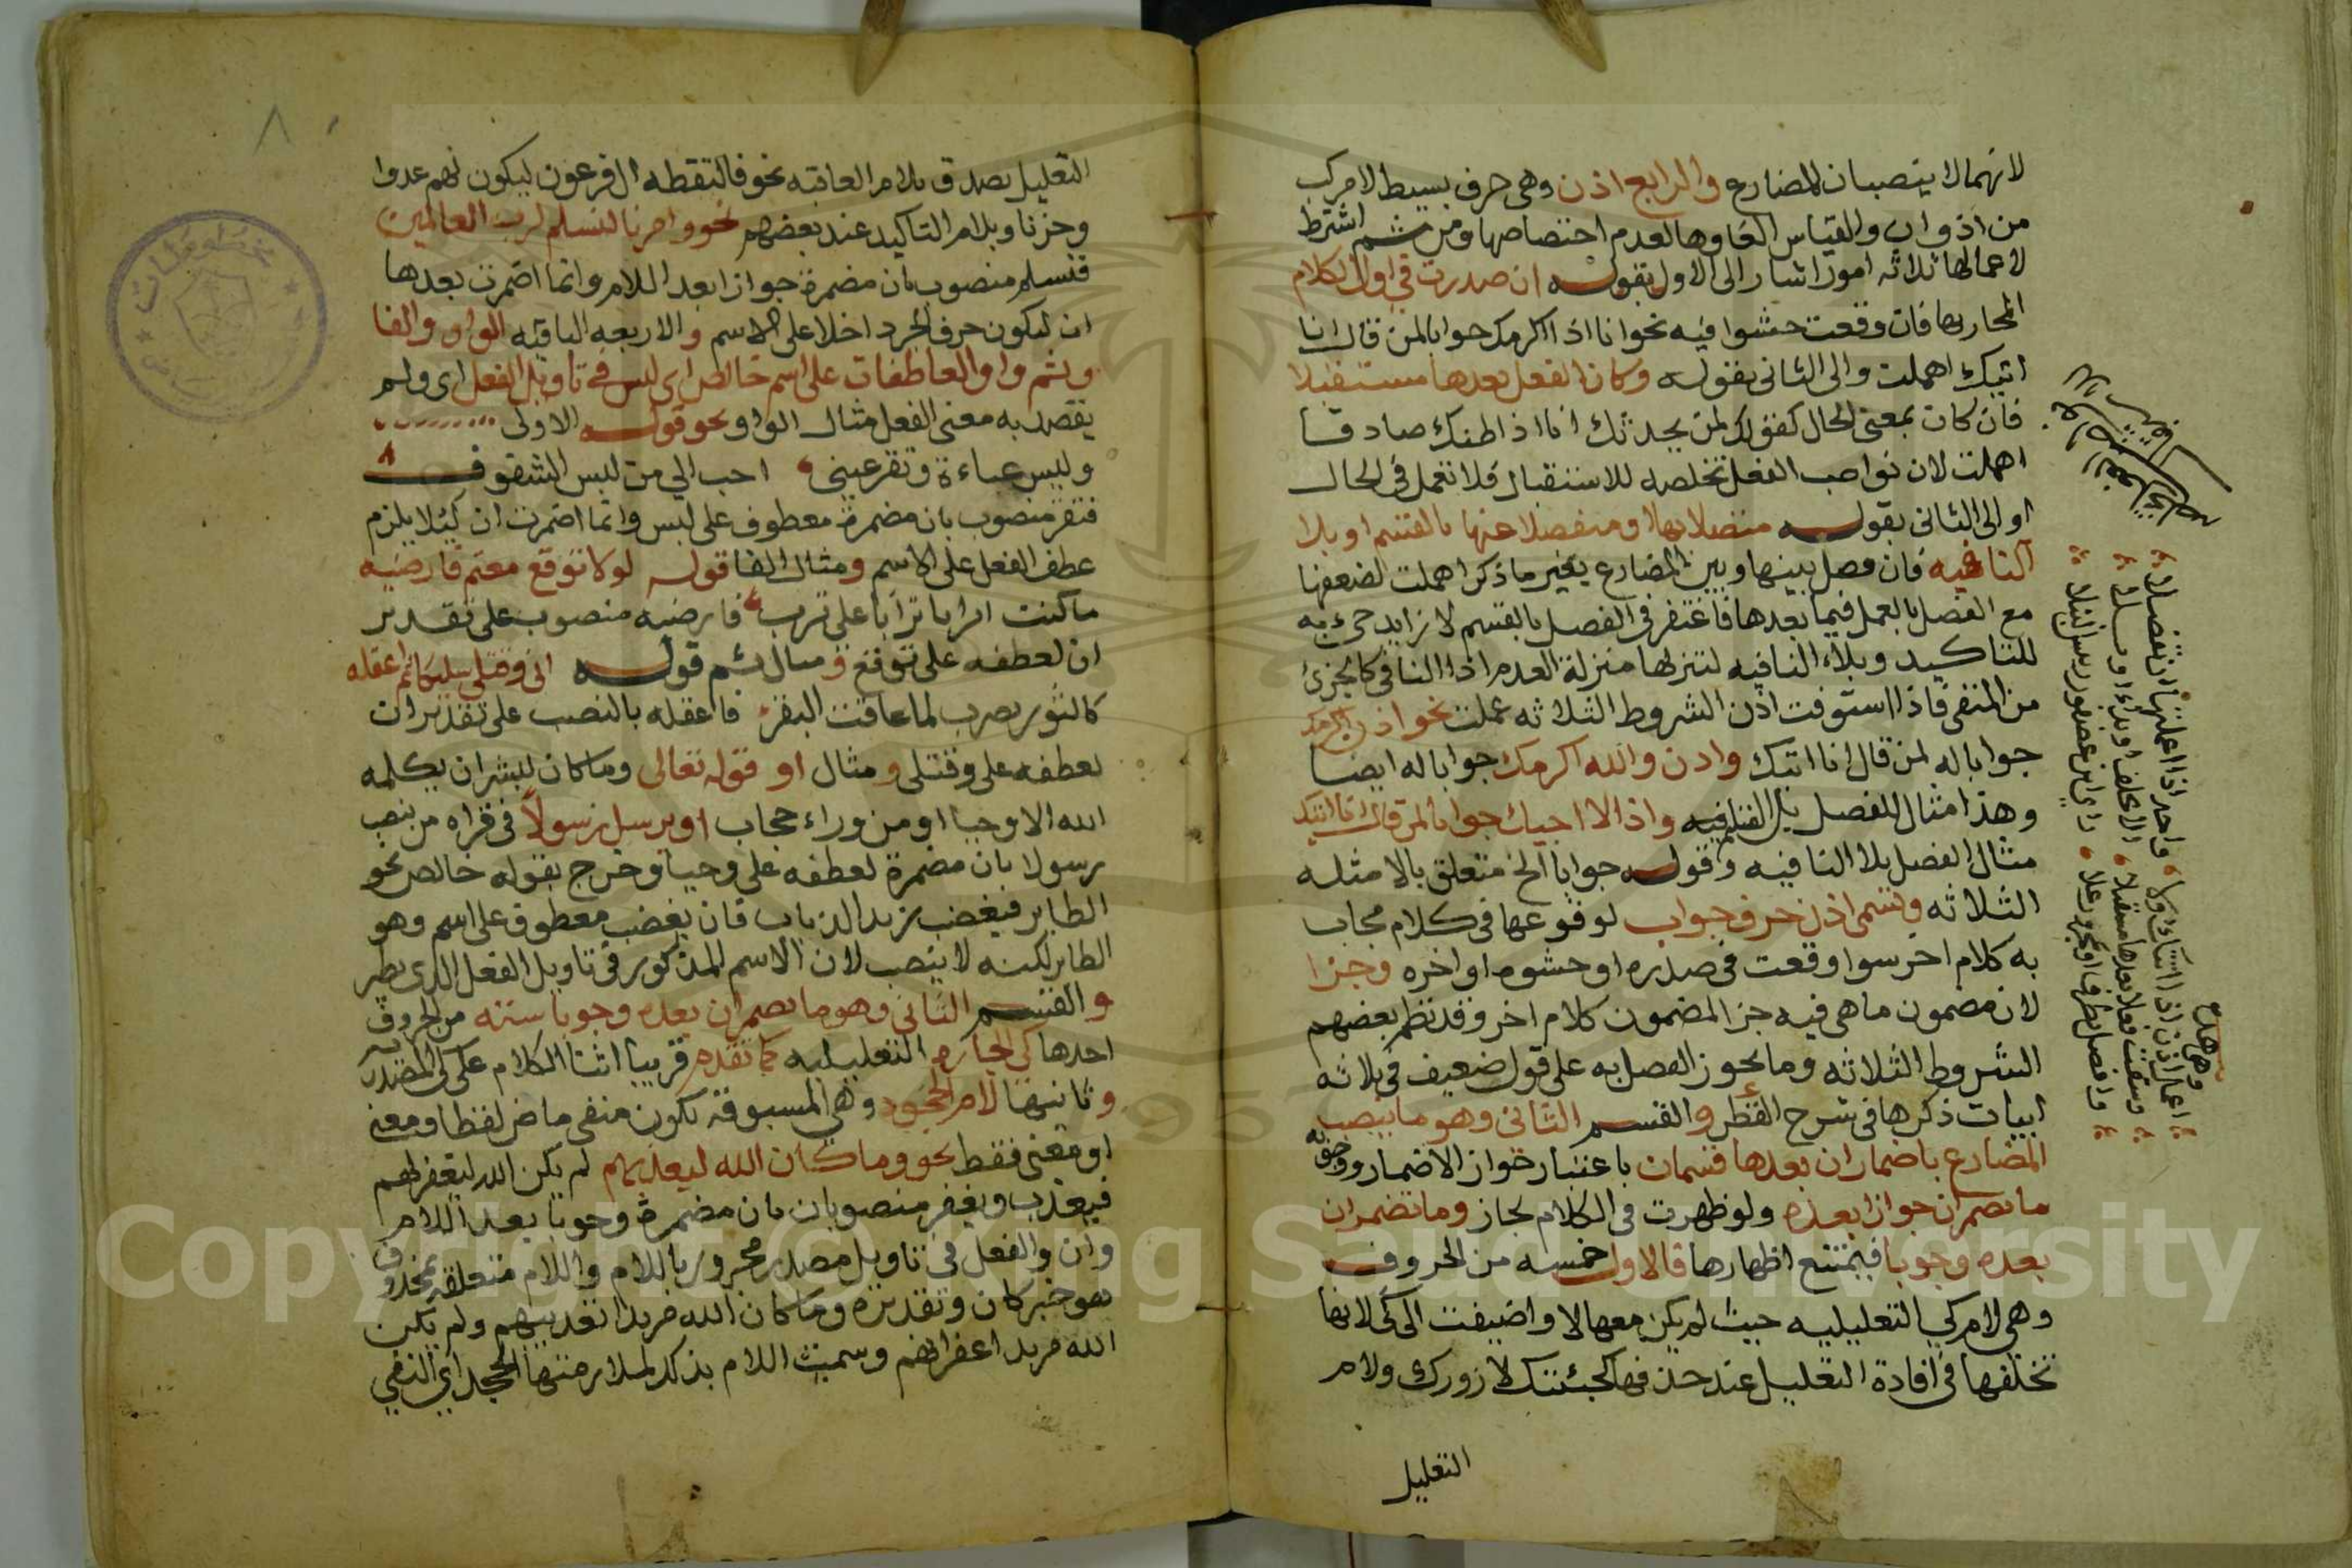 لانهما لا ينصبان المضارع والرابع اذن وهي حرف بسيط لا مركب
من اذ وان والقياس الغاوها لعدم اختصاصها ومن ثم اشترط
لاعمالها ثلاثه امور اشار الى الاول بقوله ان صدرت في اول الكلام
المجاب بها فان وقعت حشوا فيه نحو انا اذا اكرمك جوابا لمن قال انا
اتيك اهملت والى الثاني بقوله وكان الفعل بعدها مستقبلا
فان كان بمعنى الحال كقولك لمن يحدثك انا اذا اظنك صادقا
اهملت لان نواصب الفعل تخلصه للاستقبال فلا تعمل في الحال
او الى الثاني بقوله متصلا بها او منفصلا عنها بالقسم او بلا
النافيه فان فصل بينها وبين المضارع بغير ما ذكر اهملت لضعفها
مع الفصل بالعمل فيما بعدها فاغتفر في الفصل بالقسم لا زايد جيء به
للتاكيد وبلاء النافيه لتنزلها منزلة العدم اذ النافي كالجزئ
من المنفي فاذا استوفت اذن الشروط الثلاثه عملت نحو اذن اكرمك
جوابا له لمن قال انا اتيك واذن والله اكرمك جوابا له ايضا
وهذا مثال المفصل بالقسم فيه واذا لا اجيك جوابا لمن قال انا اتيك
مثال الفصل بلا النافيه وقوله جوابا الخ متعلق بالامثله
الثلاثه وتسمى اذن حرف جواب لوقوعها في كلام مجاب
به كلام اخر سوا وقعت في صدره او حشوه او اخره وجزا
لان مضمون ما هي فيه جزا لمضمون كلام اخر وقد نظم بعضهم
الشروط الثلاثه وما يجوز الفصل به على قول ضعيف في ثلاثه
ابيات ذكرها في شرح القطر والقسم الثاني وهو ما ينصب
المضارع باضمار ان بعدها قسمان باعتبار جواز الاضمار ووجوبه
ما تضمر ان جوازا بعده ولو ظهرت في الكلام لجاز وما تضمر ان
بعده وجوبا فيمتنع اظهارها فالاول خمسه من الحروف
وهي لام كي التعليليه حيث لم يكن معها لا واضيفت الى كي لانها
تخلفها في افادة التعليل عند حذفها كجئتك لازورك ولام
التعليل
وهي هذه
اعمال اذن اذا اتتك اولا، واحد اذا اعملتها ان تفصلا
وسقت فعلا بعدها مستقبلا، الا بحلف او نداء او بلا
وافصل بظرف او بمجرور على، راي ابن عصفور رئيس النبلا
التعليل يصدق بلام العاقبه نحو فالتقطه ال فرعون ليكون لهم عدوا
وحزنا وبلام التاكيد عند بعضهم نحو وامرنا لنسلم لرب العالمين
فنسلم منصوب بان مضمرة جوازا بعد اللام وانما اضمرت بعدها
ان ليكون حرف الجر داخلا على الاسم والاربعه الباقيه الواو والفا
وثم واو العاطفات على اسم خالص اي ليس في تاويل الفعل اي ولم
يقصد به معنى الفعل مثال الواو نحو قوله الاولى
ولبس عباءة وتقر عيني ، احب الي من لبس الشفوف
فتقر منصوب بان مضمرة معطوف على لبس وانما اضمرت ان ليلا يلزم
عطف الفعل على الاسم ومثال الفا قوله لولا توقع معتر فارضيه
ما كنت اوثر اترابا على ترب ، فارضيه منصوب على تقدير
ان لعطفه على توقع ومثال ثم قوله اني وقتلي سليكا ثم اعقله
كالثور يضرب لما عافت البقر ، فاعقله بالنصب على تقدير ان
لعطفه على وقتلي ومثال او قوله تعالى وما كان لبشر ان يكلمه
الله الا وحيا او من وراء حجاب او يرسل رسولا في قراه من نصب
يرسولا بان مضمرة لعطفه على وحيا وخرج بقوله خالص نحو
الطاير فيغضب زيد الذباب فان يغضب معطوف على اسم وهو
الطاير لكنه لا ينصب لان الاسم المذكور في تاويل الفعل الذي يطير
والقسم الثاني وهو ما تضمر ان بعده وجوبا سته من الحروف
احدها كي الجاره التعليليه كما تقدم قريبا اثنا الكلام على كي المصدريه
وثانيها لام الجحود وهي المسبوقه بكون منفي ماض لفظا ومعنى
او معنى فقط نحو وما كان الله ليعذبهم لم يكن الله ليغفر لهم
فيعذب ويغفر منصوبان بان مضمرة وجوبا بعد اللام
وان والفعل في تاويل مصدر مجرور باللام واللام متعلقه بمحذوف
هو خبر كان وتقديره وما كان الله مريدا تعذيبهم ولم يكن
الله مريدا غفرانهم وسميت اللام بذلك لملازمتها الجحد اي النفي
Copyright © King Saud University